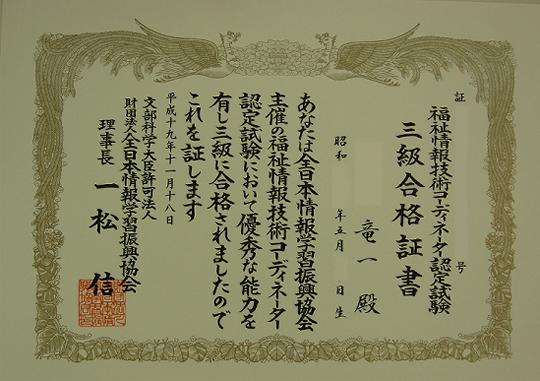 証 号
福祉情報技術コーディネーター認定試験
三級合格証書
竜一殿
昭和 年五月 日生
あなたは全日本情報学習振興協会
主催の福祉情報技術コーディネーター
認定試験において優秀な能力を
有し三級に合格されましたので
これを証します
平成十九年十一月十八日
文部科学大臣許可法人
財団法人全日本情報学習振興協会
理事長 一松信